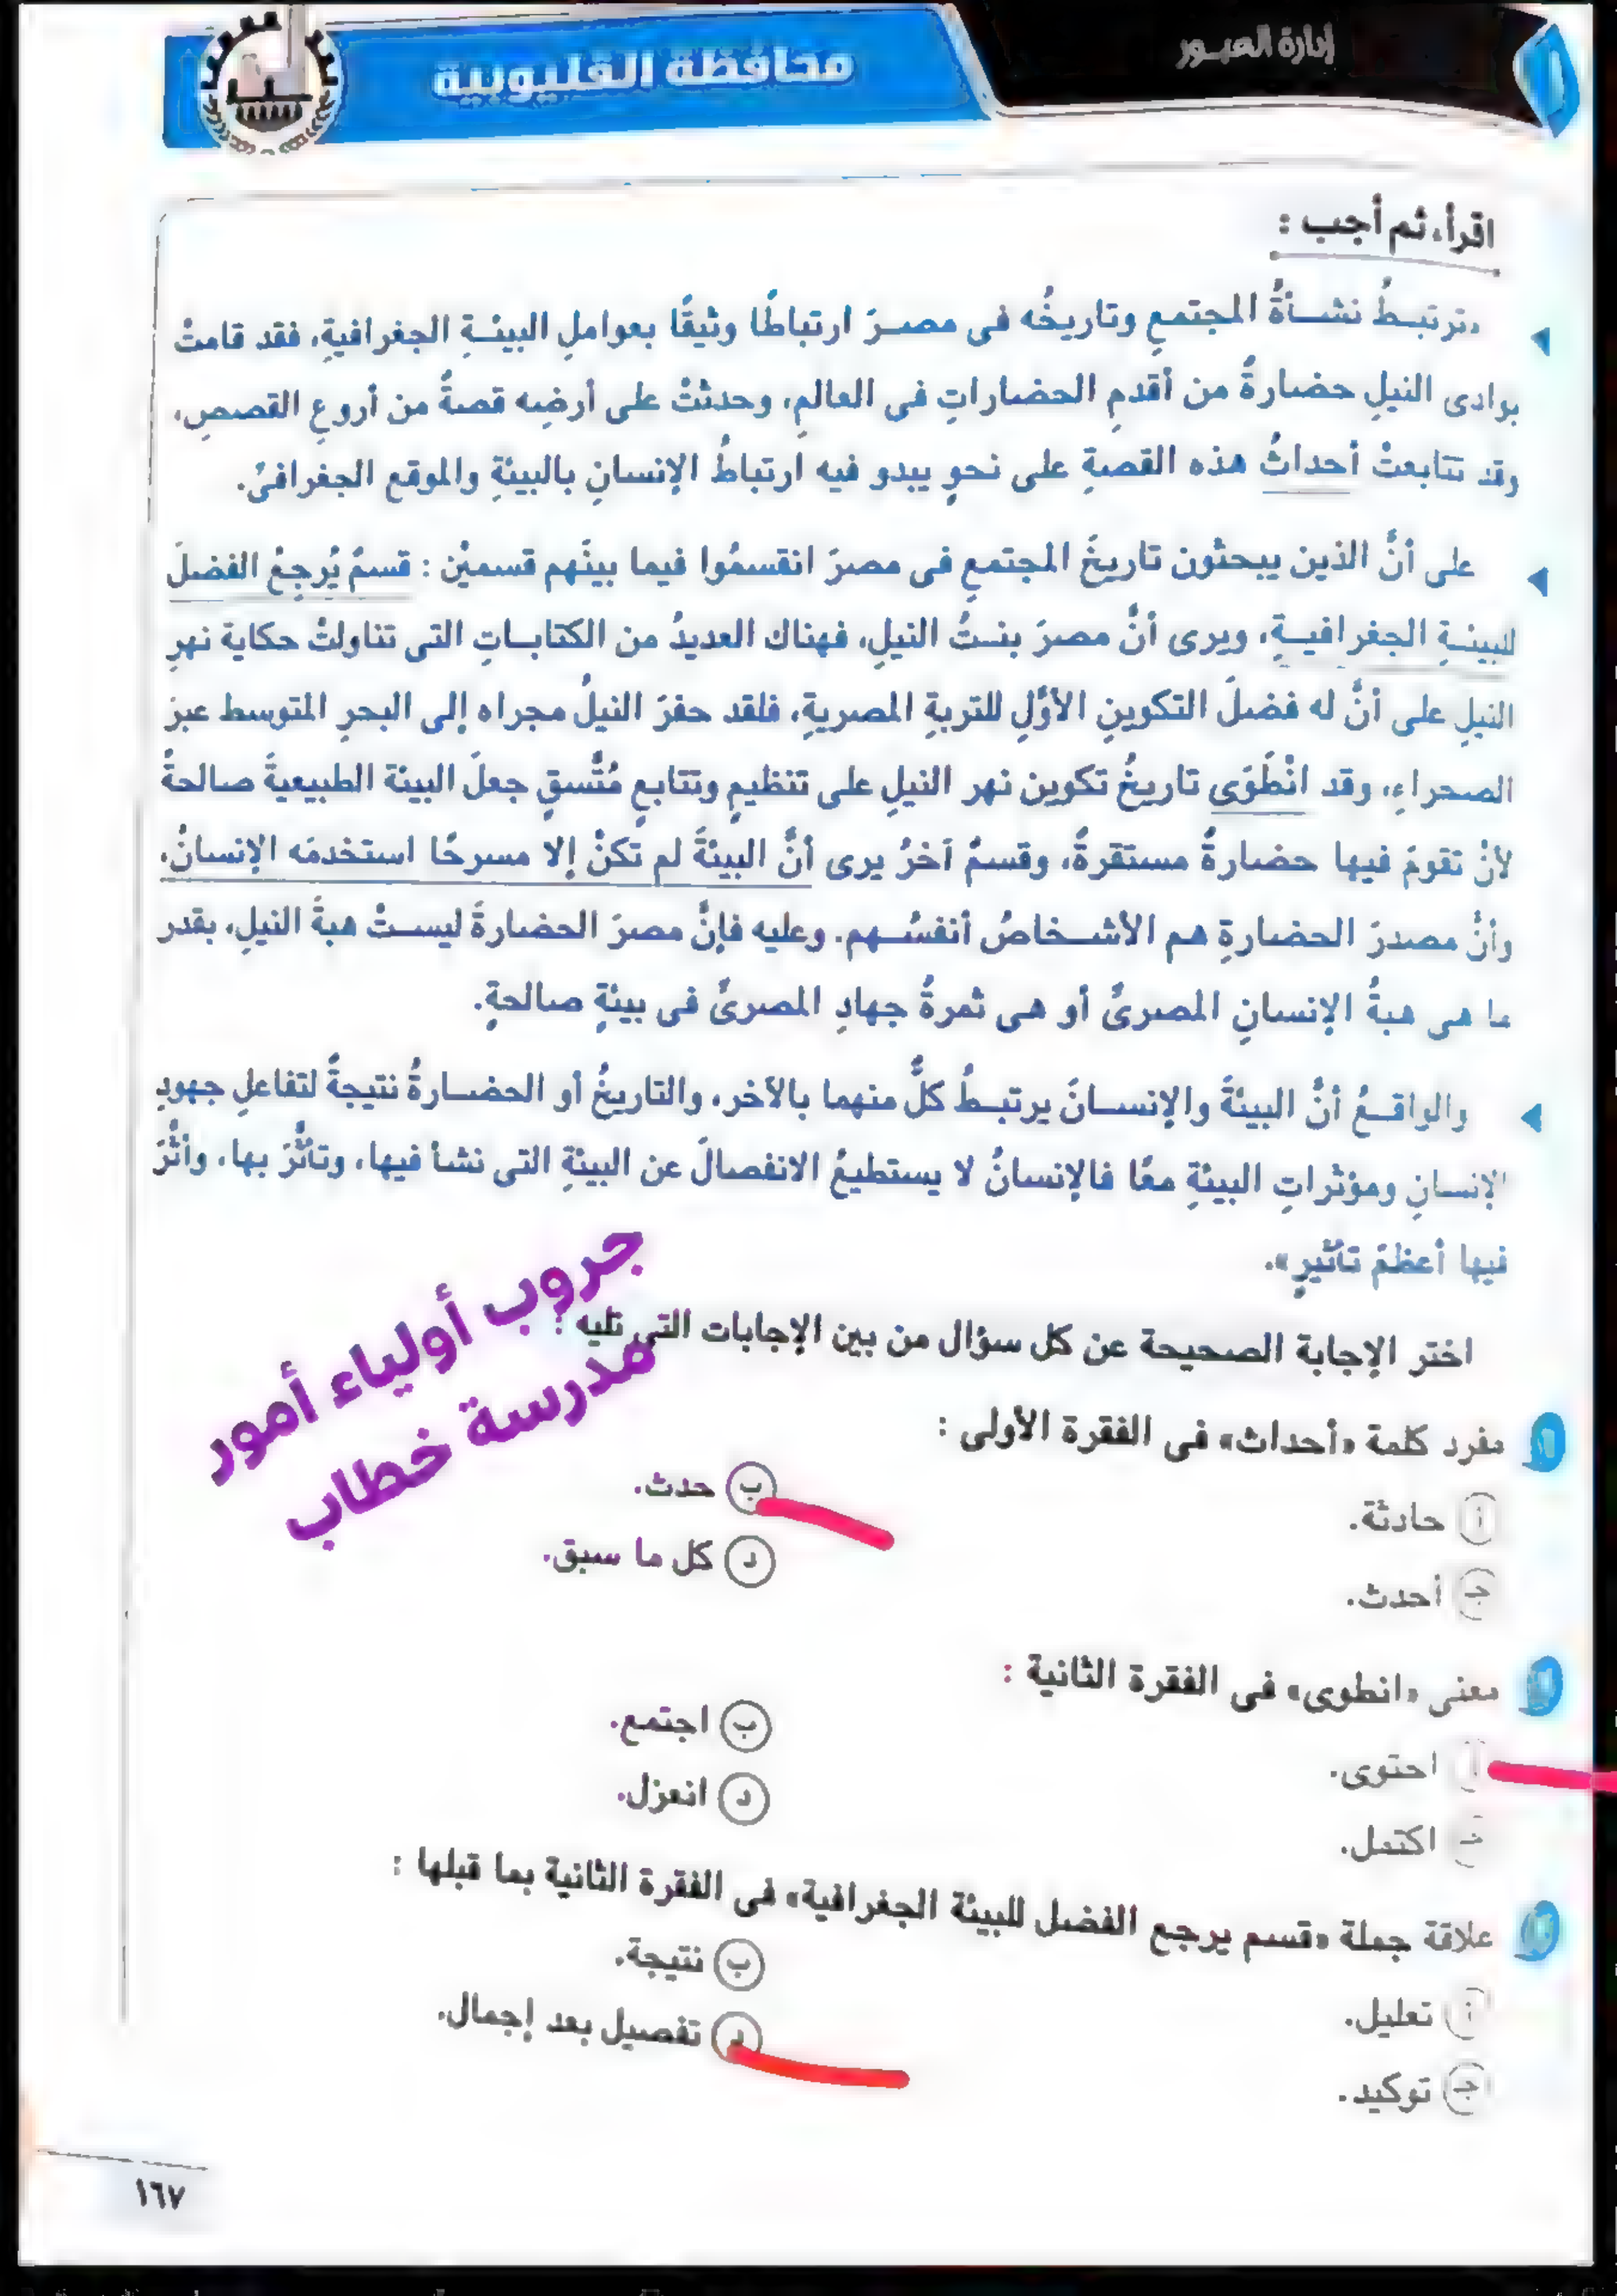 إدارة العبور
محافظة القليوبية
اقرأ، ثم أجب :
«ترتبطُ نشأةُ المجتمعِ وتاريخُه فى مصرَ ارتباطًا وثيقًا بعواملِ البيئةِ الجغرافيةِ، فقد قامتْ
بوادى النيلِ حضارةٌ من أقدمِ الحضاراتِ فى العالمِ، وحدثتْ على أرضِه قصةٌ من أروعِ القصصِ،
وقد تتابعتْ أحداثُ هذه القصةِ على نحوٍ يبدو فيه ارتباطُ الإنسانِ بالبيئةِ والموقع الجغرافىِّ.
على أنَّ الذين يبحثون تاريخَ المجتمعِ فى مصرَ انقسمُوا فيما بينَهم قسميْن : قسمٌ يُرجِعُ الفضلَ
للبيئةِ الجغرافيةِ، ويرى أنَّ مصرَ بنتُ النيلِ، فهناك العديدُ من الكتاباتِ التى تناولتْ حكاية نهرِ
النيلِ على أنَّ له فضلَ التكوينِ الأوَّلِ للتربةِ المصريةِ، فلقد حفرَ النيلُ مجراه إلى البحرِ المتوسط عبرَ
الصحراءِ، وقد انْطَوَى تاريخُ تكوين نهر النيلِ على تنظيمٍ وتتابعٍ مُتَّسقٍ جعلَ البيئة الطبيعيةَ صالحةً
لأنْ تقومَ فيها حضارةٌ مستقرةٌ، وقسمٌ آخرُ يرى أنَّ البيئةَ لم تكنْ إلا مسرحًا استخدمَه الإنسانُ،
وأنَّ مصدرَ الحضارةِ هم الأشخاصُ أنفسُهم. وعليه فإنَّ مصرَ الحضارةَ ليستْ هبةَ النيلِ، بقدر
ما هى هبةُ الإنسانِ المصرىِّ أو هى ثمرةُ جهادِ المصرىِّ فى بيئةٍ صالحةٍ.
والواقعُ أنَّ البيئةَ والإنسانَ يرتبطُ كلٌّ منهما بالآخر، والتاريخُ أو الحضارةُ نتيجةٌ لتفاعلِ جهودِ
الإنسانِ ومؤثراتِ البيئةِ معًا فالإنسانُ لا يستطيعُ الانفصالَ عن البيئةِ التى نشأ فيها، وتأثَّرَ بها، وأثَّرَ
فيها أعظمَ تأثيرٍ».
جروب أولياء أمور
مدرسة خطاب
اختر الإجابة الصحيحة عن كل سؤال من بين الإجابات التى تليه :
مفرد كلمة «أحداث» فى الفقرة الأولى :
أ حادثة.
ب حدث.
جـ أحدث.
د كل ما سبق.
معنى «انطوى» فى الفقرة الثانية :
أ احتوى.
ب اجتمع.
جـ اكتمل.
د انعزل.
علاقة جملة «قسم يرجع الفضل للبيئة الجغرافية» فى الفقرة الثانية بما قبلها :
أ تعليل.
ب نتيجة.
جـ توكيد.
د تفصيل بعد إجمال.
١٦٧